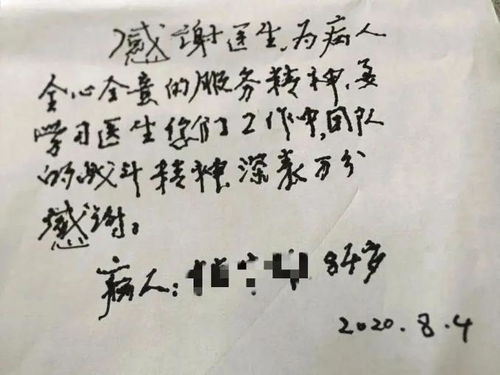 感谢医生,为病人
全心全意的服务精神,要
学习医生您们工作中,团队
的战斗精神,深表万分
感谢。
病人: 84岁
2020.8.4